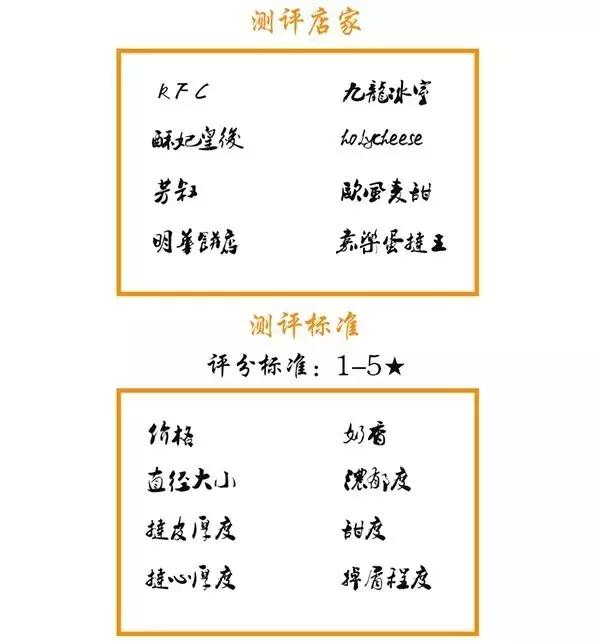 测评店家
KFC 九龍冰室
酥妃皇後 holycheese
芳叔 歐風麦甜
明華餅店 嘉樂蛋撻王
测评标准
评分标准：1-5★
价格 奶香
直径大小 濃郁度
撻皮厚度 甜度
撻心厚度 掉屑程度